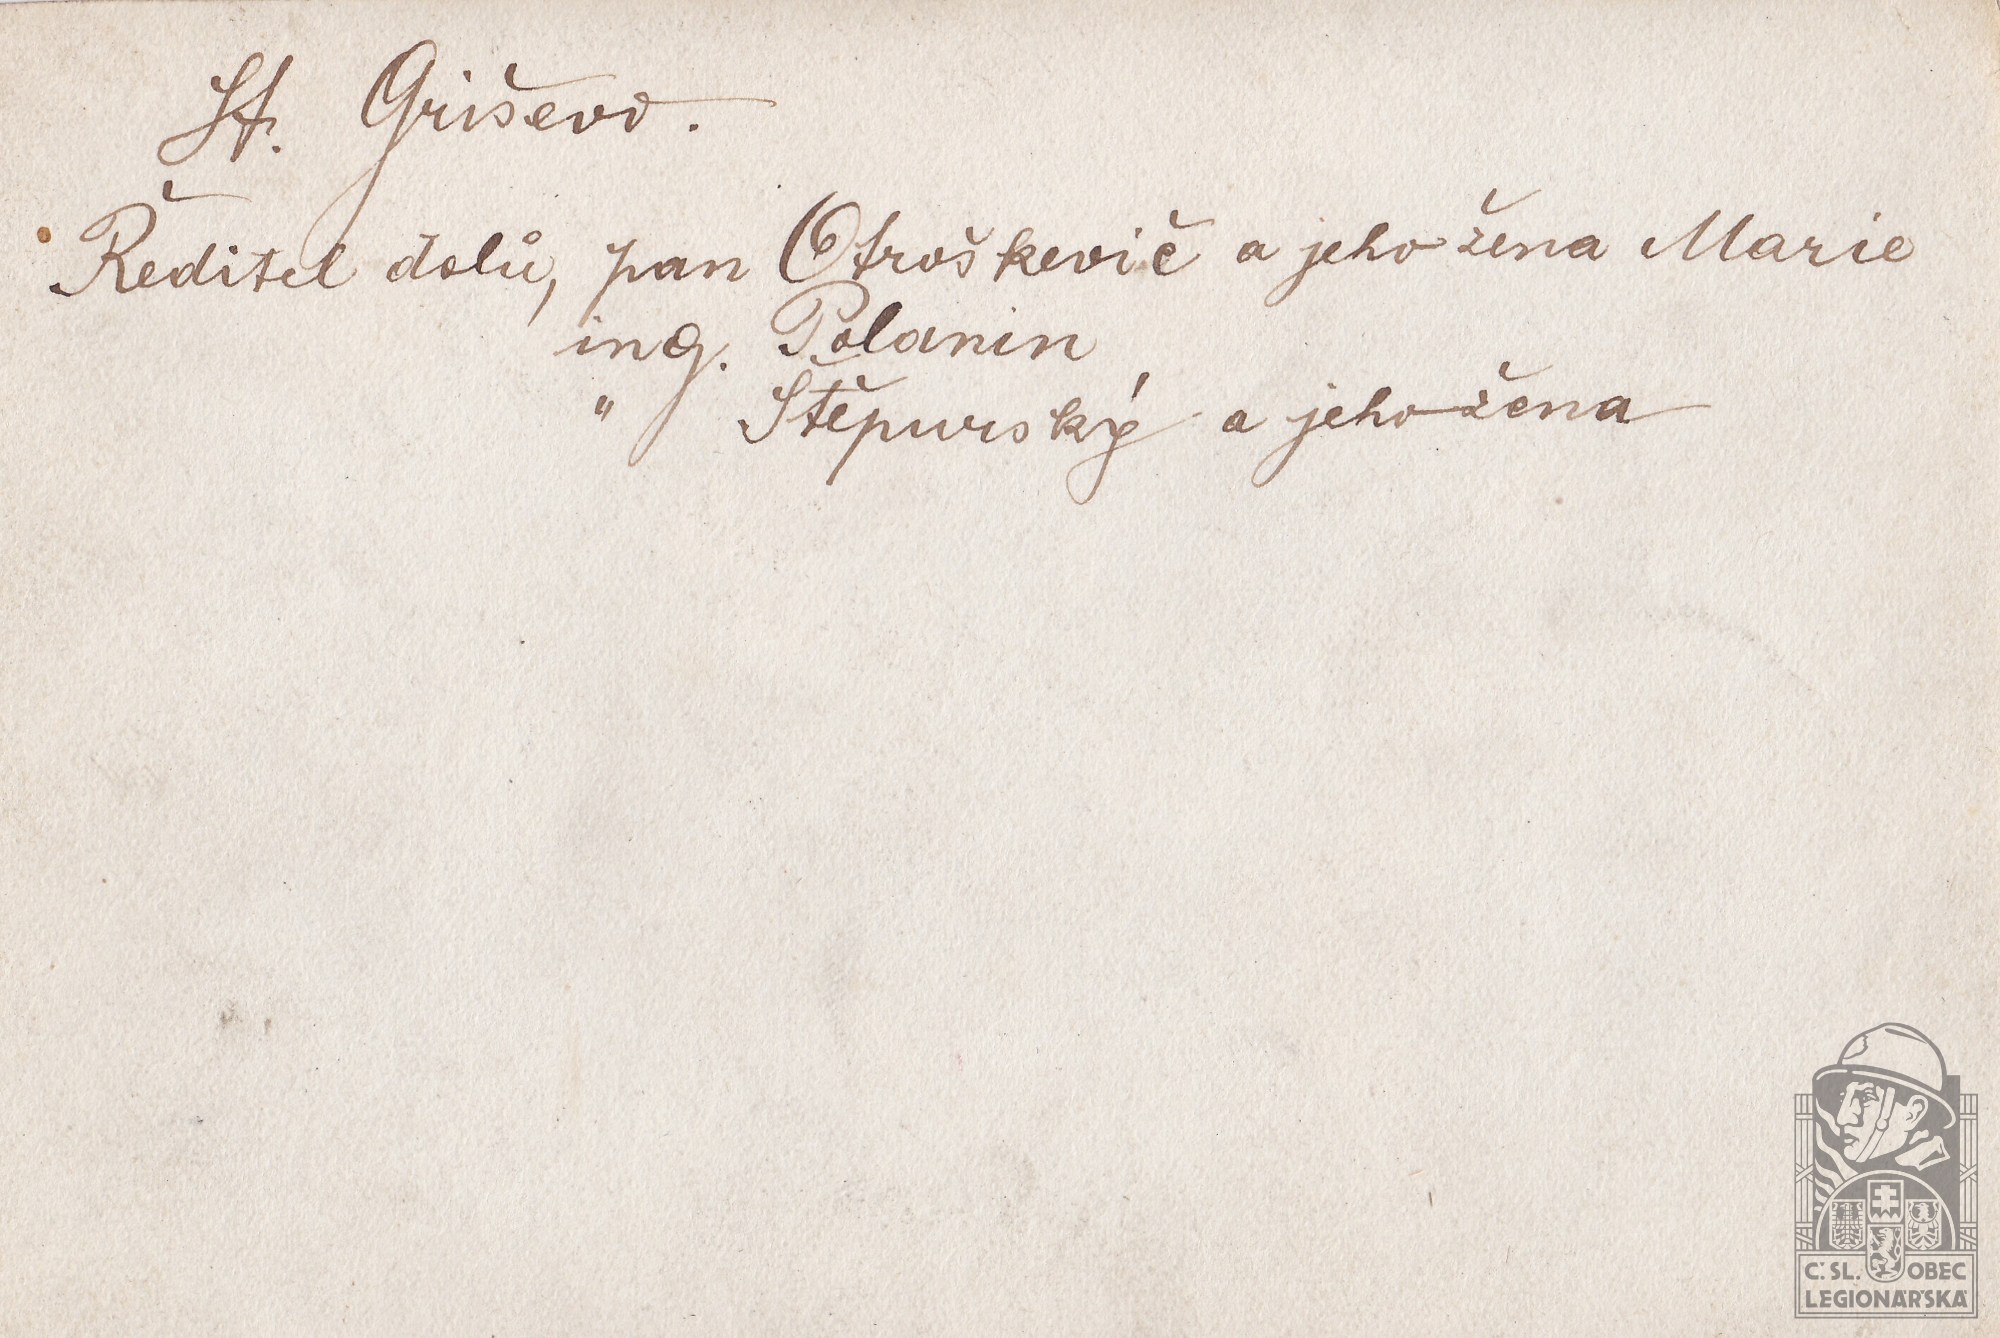 St. Griševo.
Ředitel dolů, pan Otroškevič a jeho žena Marie
ing. Polanin
" Štěpurský a jeho žena
Č.SL. OBEC
LEGIONÁŘSKÁ